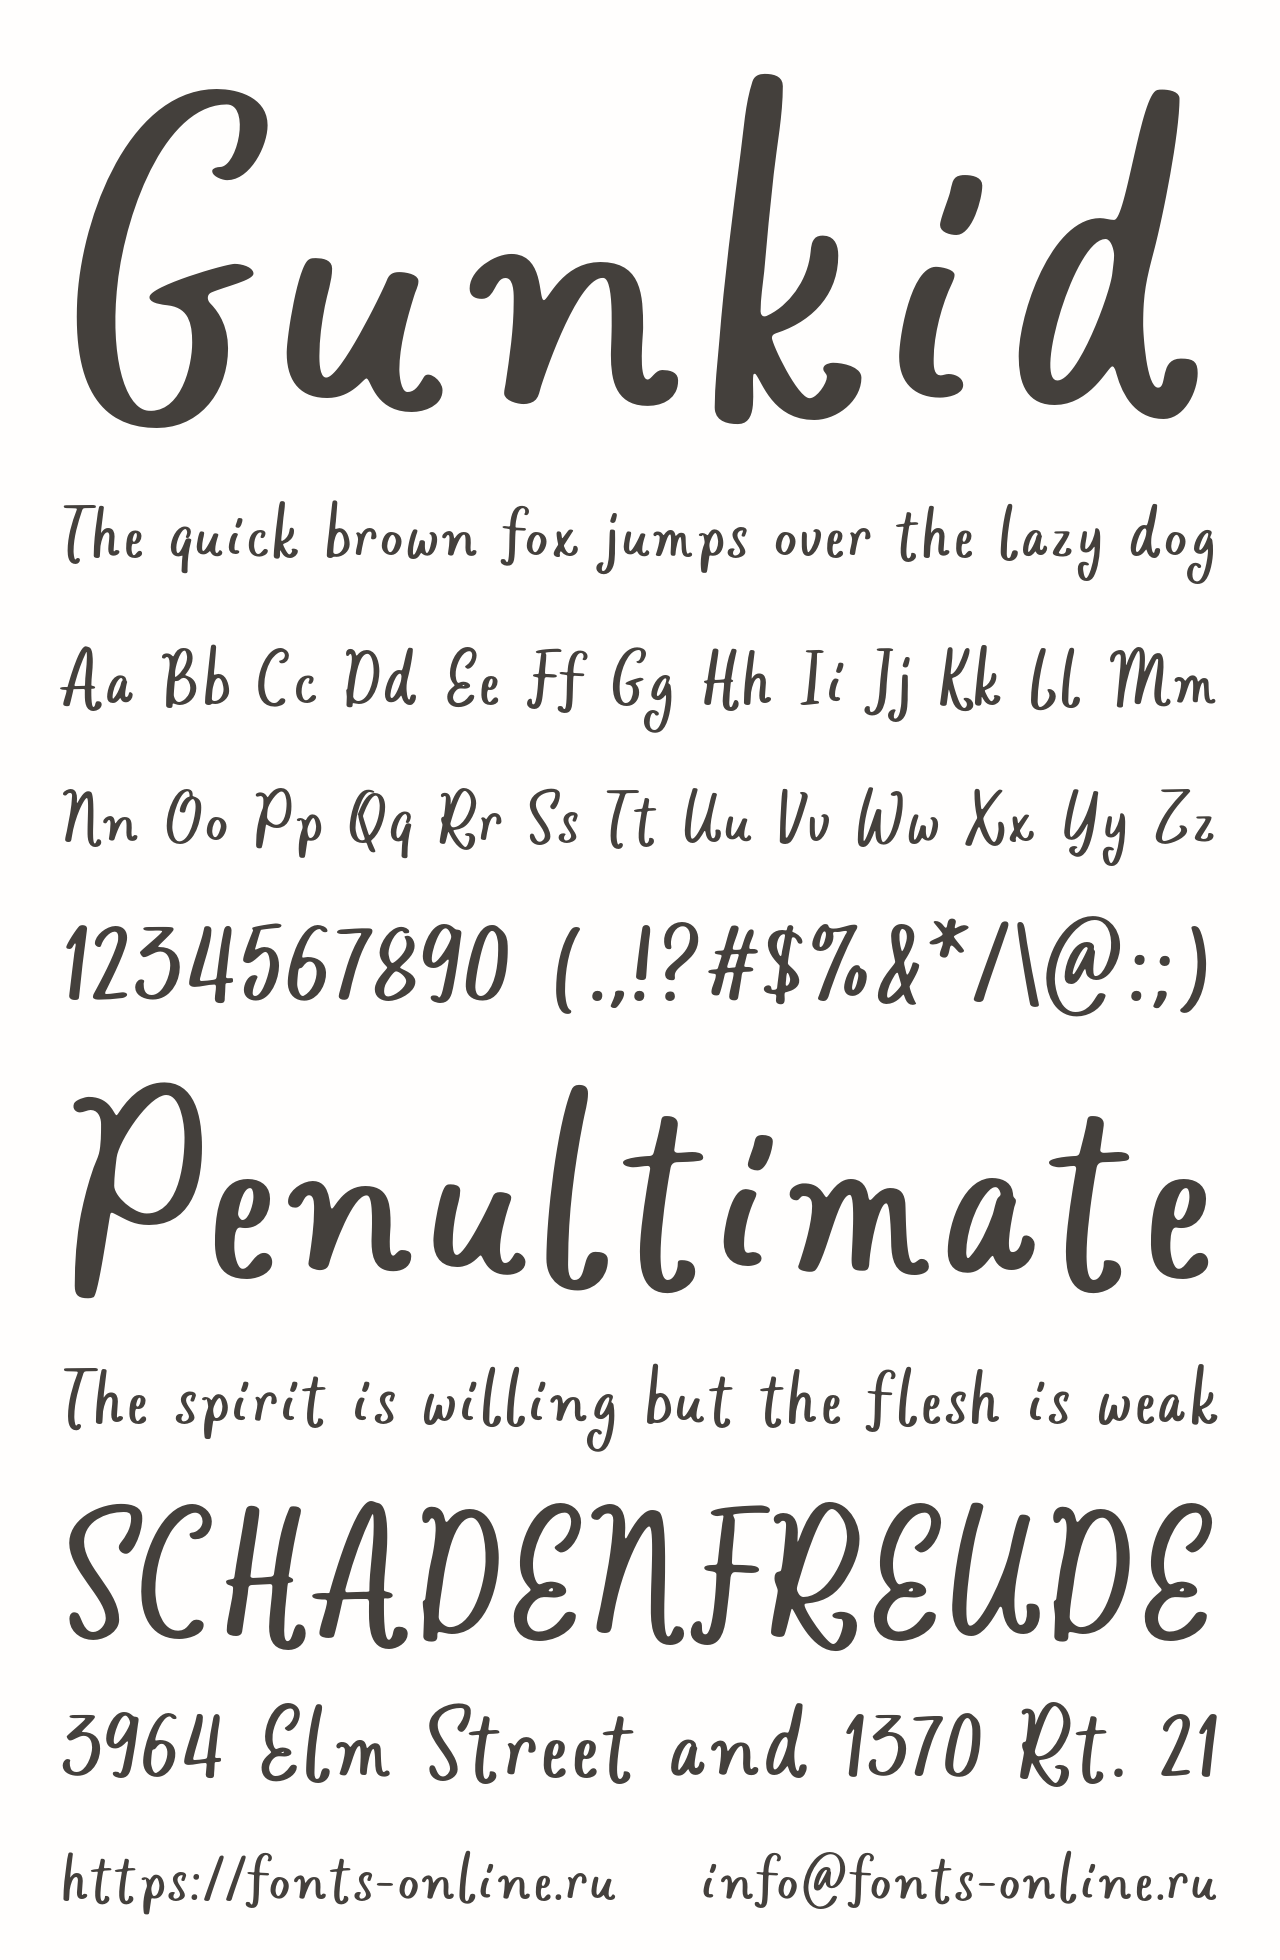 Gunkid
The quick brown fox jumps over the lazy dog
Aa Bb Cc Dd Ee Ff Gg Hh Ii Jj Kk Ll Mm
Nn Oo Pp Qq Rr Ss Tt Uu Vv Ww Xx Yy Zz
1234567890 (.,!?#$%&*/\@:;)
Penultimate
The spirit is willing but the flesh is weak
SCHADENFREUDE
3964 Elm Street and 1370 Rt. 21
https://fonts-online.ru info@fonts-online.ru